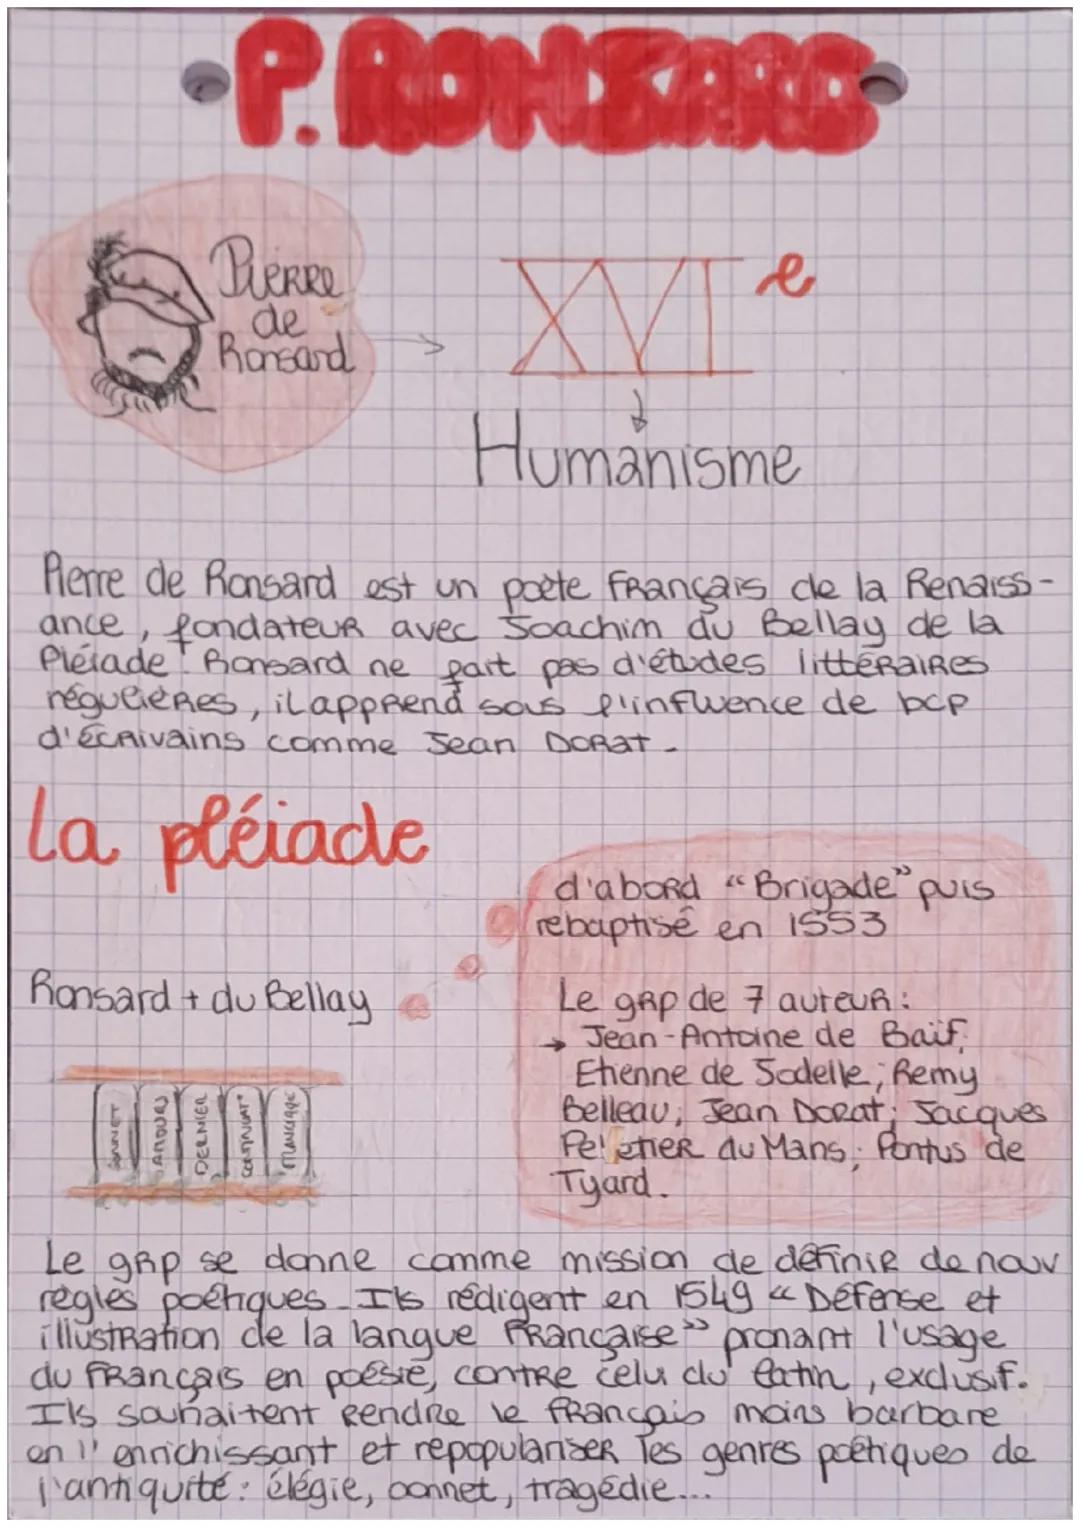 P.RONSARD
Pierre
de
Ronsard
XVI e
Humanisme
Pierre de Ronsard est un poète Français de la Renaiss-
ance, fondateur avec Joachim du Bellay de la
Pléiade. Ronsard ne fait pas d'études littéraires
régulières, il apprend sous l'influence de bcp
d'écrivains comme Jean Dorat.
La pléiade
d'abord "Brigade" puis
rebaptisé en 1553
Ronsard + du Bellay
Le grp de 7 auteur :
→ Jean-Antoine de Baïf;
Etienne de Jodelle; Remy
Belleau; Jean Dorat; Jacques
Pelletier du Mans; Pontus de
Tyard.
SONNET
AMOURS
DERNIER
Le grp se donne comme mission de définir de nouv
règles poétiques. Ils rédigent en 1549 "Défense et
illustration de la langue Française" pronant l'usage
du Français en poésie, contre celui du latin, exclusif.
Ils souhaitent rendre le français moins barbare
en l'enrichissant et repopulariser les genres poétiques de
l'antiquité : élégie, sonnet, tragédie...